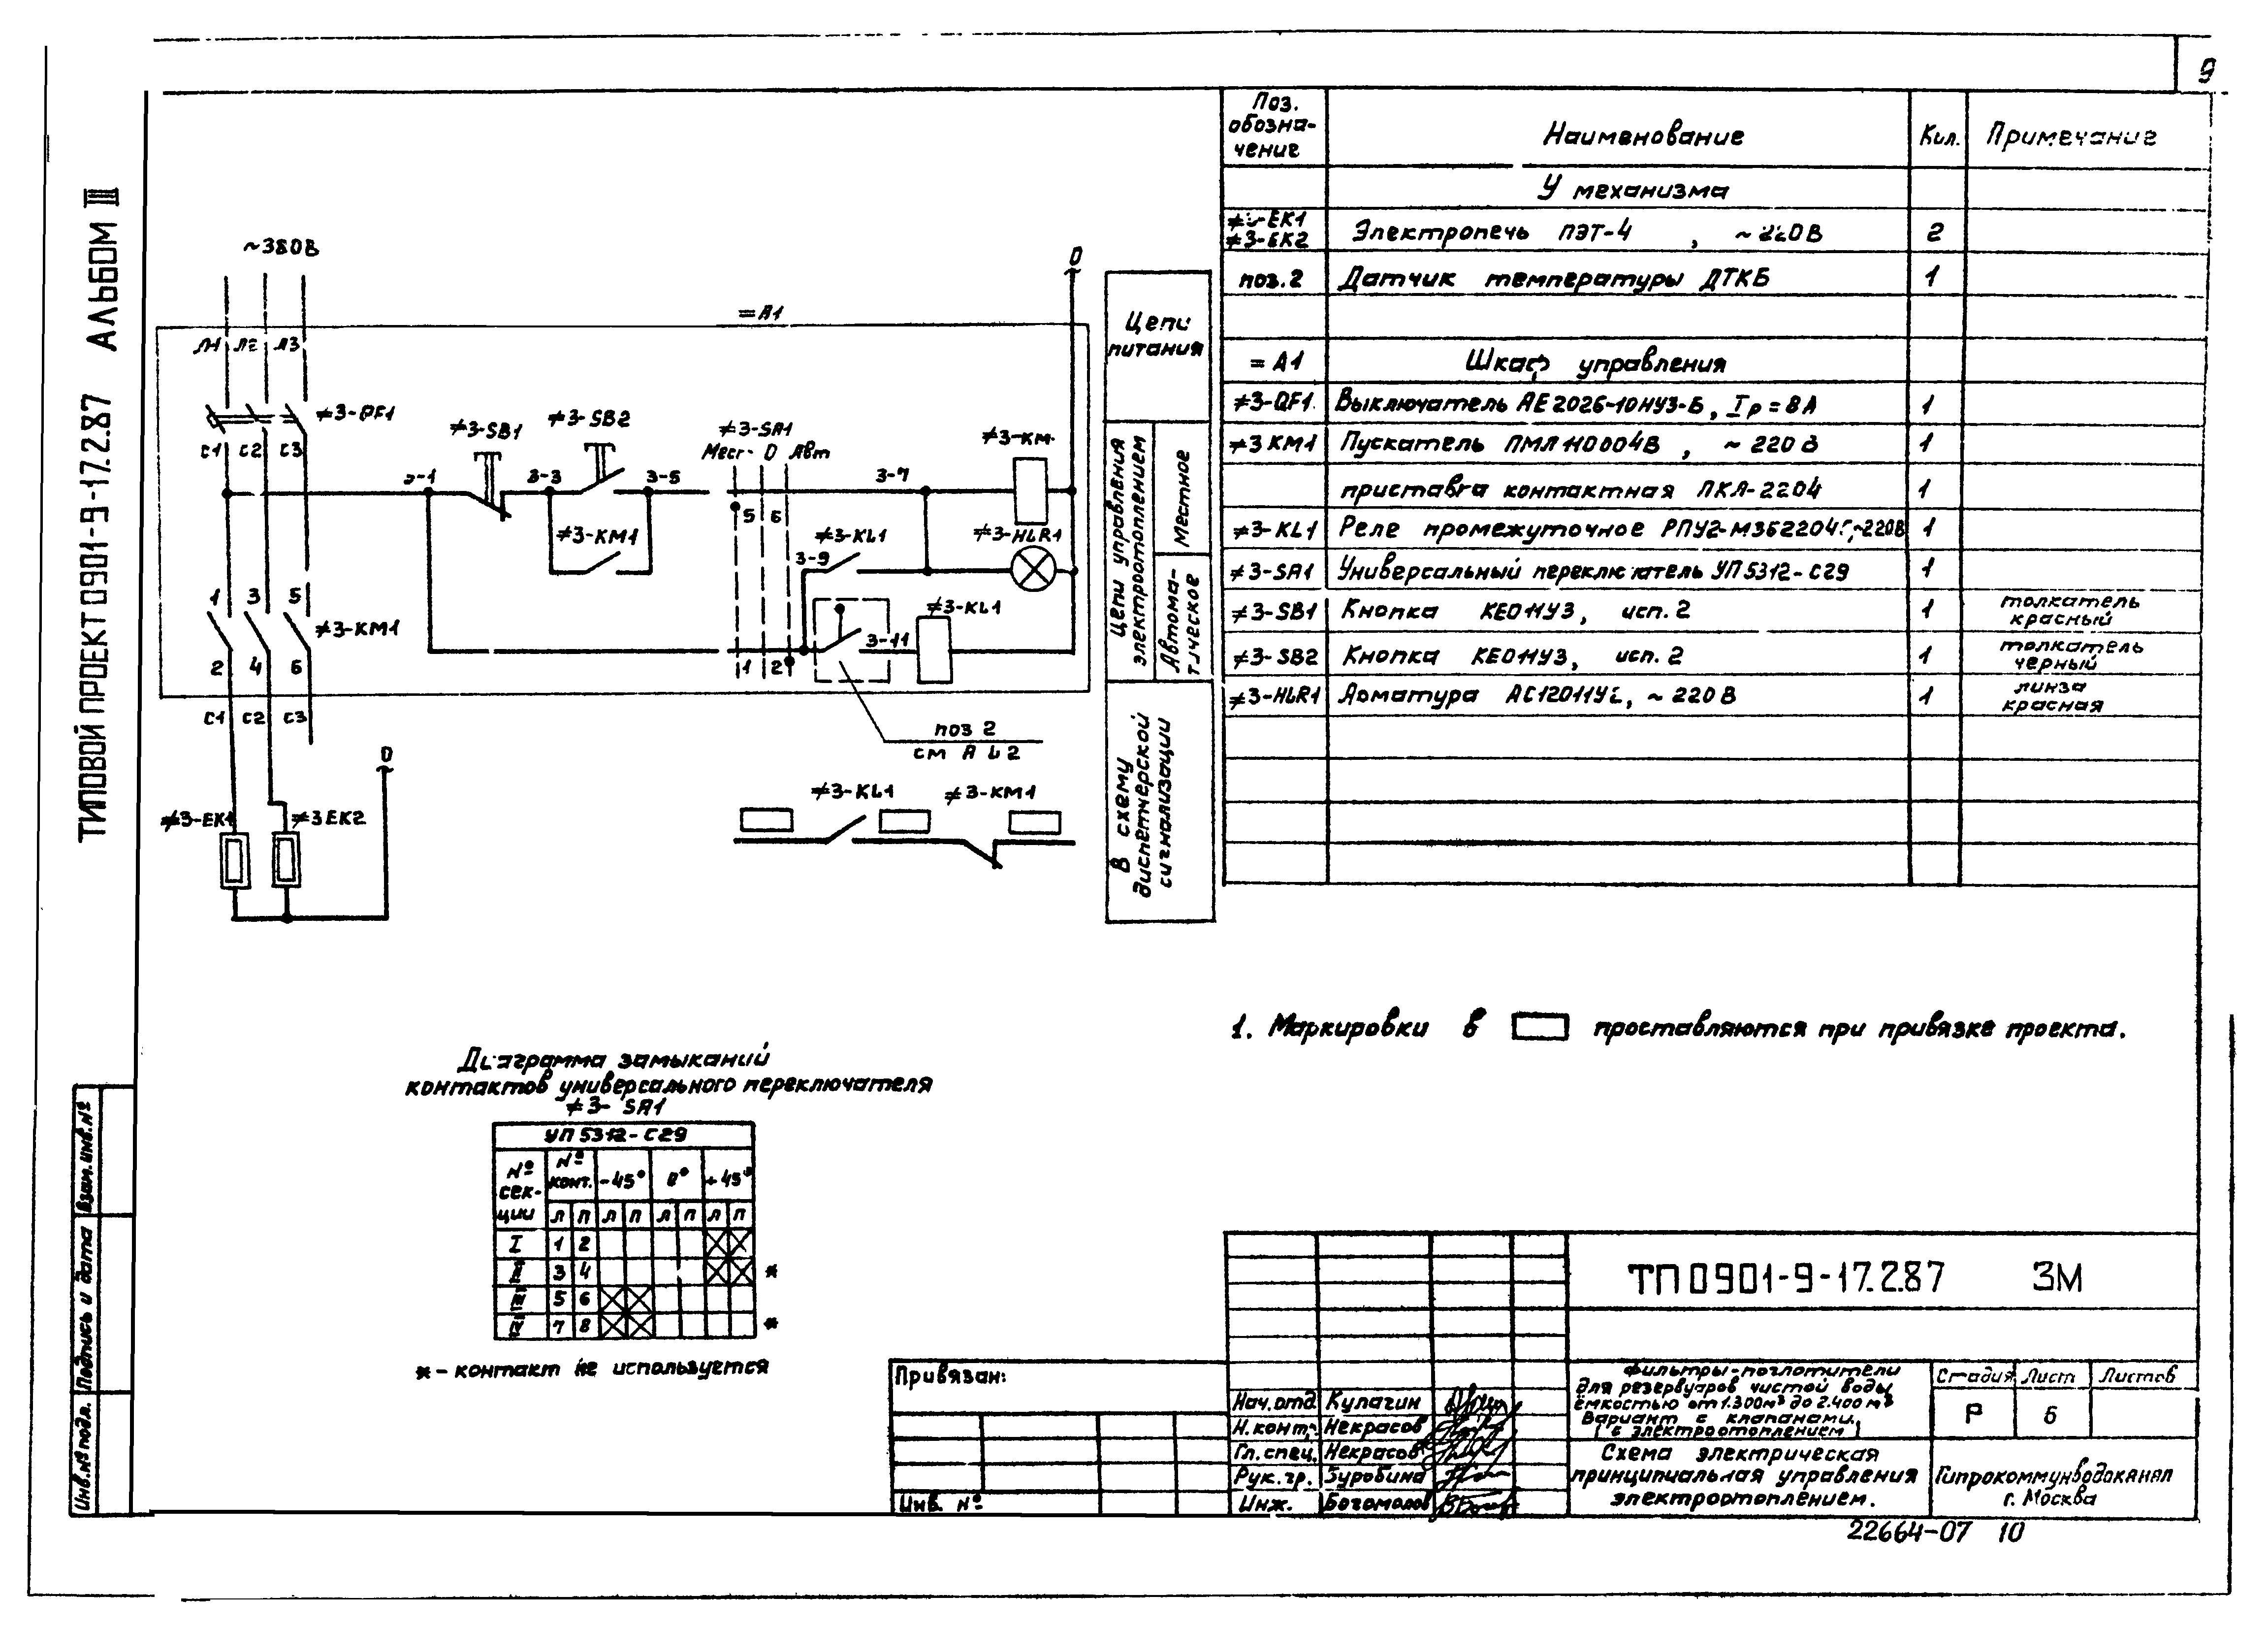 9
ТИПОВОЙ ПРОЕКТ 0901-9-17.2.87 АЛЬБОМ III
~380В
=А1
0
Л1 Л2 Л3
≠3-QF1
С1 С2 С3
≠3-SB1
≠3-SB2
≠3-SA1
Мест- 0 Авт
≠3-КМ
3-1
3-3
3-5
3-7
5 6
≠3-КМ1
≠3-KL1
≠3-HLR1
3-9
1 3 5
≠3-КМ1
2 4 6
≠3-KL1
3-11
1 2
С1 С2 С3
поз 2
см А L 2
0
≠3-ЕК1
≠3ЕК2
≠3-KL1
≠3-КМ1
Цепи
питания
Цепи управления
электроотоплением
Местное
Автома-
тическое
В схему
диспетчерской
сигнализации
Поз.
обозна-
чение
Наименование
Кол.
Примечание
У механизма
≠3-ЕК1
≠3-ЕК2
Электропечь ПЭТ-4 , ~220В
2
поз.2 Датчик температуры ДТКБ 1
=А1 Шкаф управления
≠3-QF1 Выключатель АЕ2026-10НУЗ-Б, Iр=8А 1
≠3 КМ1 Пускатель ПМЛ110004В , ~220В 1
приставка контактная ПКЛ-2204 1
≠3-KL1 Реле промежуточное РПУ2-М362204 ,~220В 1
≠3-SA1 Универсальный переключатель УП5312-С29 1
≠3-SB1 Кнопка КЕ011УЗ, исп.2 1 толкатель
красный
≠3-SB2 Кнопка КЕ011УЗ, исп.2 1 толкатель
черный
≠3-HLR1 Арматура АС12011У2, ~220В 1 линза
красная
1. Маркировки в проставляются при привязке проекта.
Диаграмма замыканий
контактов универсального переключателя
≠3- SA1
УП 5312-С29
№
сек-
ции
№
конт.
-45° 0° +45°
Л П Л П Л П Л П
I 1 2
II 3 4 *
III 5 6
IV 7 8 *
*-контакт не используется
Взам.инв.№
Подпись и дата
Инв.№ подл.
Привязан:
Инв. №
Нач.отд Кулагин
Н.конт. Некрасов
Гл.спец. Некрасов
Рук.гр. Буробина
Инж. Богомолов
ТП 0901-9-17.2.87 ЭМ
Фильтры-поглотители
для резервуаров чистой воды
ёмкостью от 1.300м³ до 2.400 м³
Вариант с клапанами
(с электроотоплением)
Стадия Лист Листов
Р 6
Схема электрическая
принципиальная управления
электроотоплением.
Гипрокоммунводоканал
г. Москва
22664-07 10